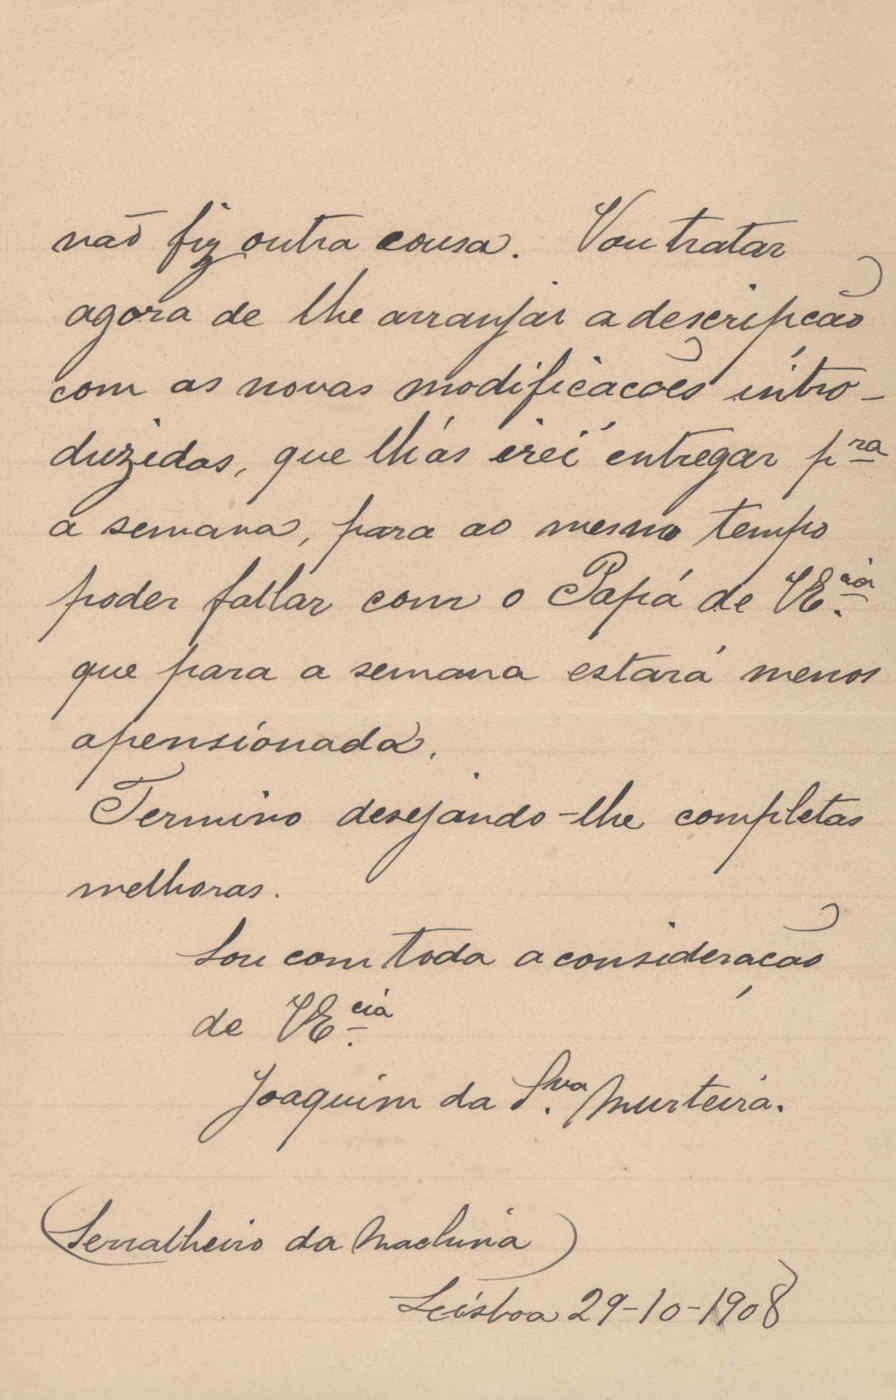 não fiz outra cousa. Vou tratar
agora de lhe arranjar a descripcão
com as novas modificacões intro-
duzidas, que lhás irei entregar pra
a semana, para ao mesmo tempo
poder fallar com o Papá de VE.cia
que para a semana estará menos
apensionada.
Termino desejando-lhe completas
melhoras.
Sou com toda a consideração
de VE.cia
Joaquim da S.va Murteira.
(Serralheiro da Machina)
Lisboa 29-10-1908